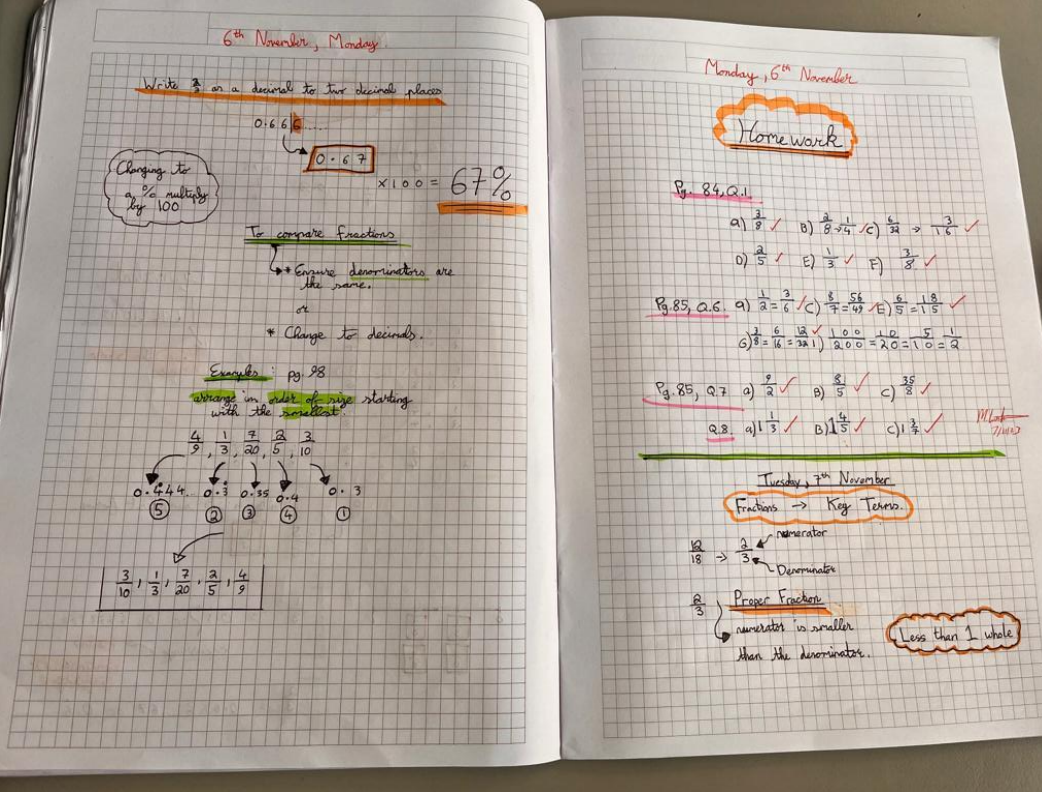 6th November, Monday
Write 2/3 as a decimal to two decimal places
0.66|6....
0.67
×100 = 67%
Changing to
a % multiply
by 100
To compare fractions
* Ensure denominators are
the same.
or
* Change to decimals.
Examples: pg. 98
arrange in order of size starting
with the smallest.
4/9, 1/3, 7/20, 2/5, 3/10
0.444.. 0.3̇ 0.35 0.4 0.3
⑤ ② ③ ④ ①
3/10, 1/3, 7/20, 2/5, 4/9
Monday, 6th November
Homework
Pg. 84, Q.1
a) 3/8 ✓ B) 2/8 → 1/4 ✓ C) 6/32 → 3/16 ✓
D) 2/5 ✓ E) 1/3 ✓ F) 3/8 ✓
Pg. 85, Q.6. a) 1/2 = 3/6 ✓ C) 8/7 = 56/49 ✓ E) 6/5 = 18/15 ✓
G) 3/8 = 6/16 = 12/32 ✓ I) 100/200 = 10/20 = 5/10 = 1/2
Pg. 85, Q.7 a) 9/2 ✓ B) 8/5 ✓ C) 35/8 ✓
Q.8. a) 1 1/3 ✓ B) 1 4/5 ✓ C) 1 3/7 ✓
Tuesday, 7th November
Fractions → Key Terms.
12/18 → 2/3
numerator
Denominator
2/3 Proper Fraction
numerator is smaller
than the denominator.
Less than 1 whole